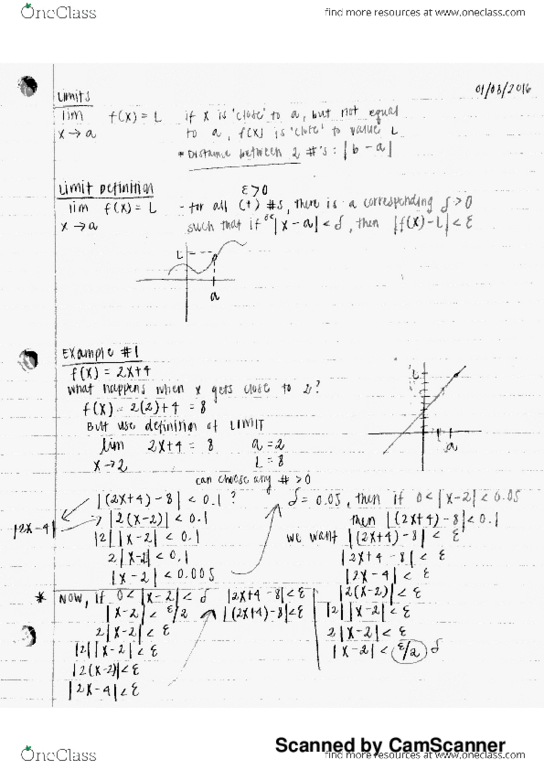 OneClass
find more resources at www.oneclass.com
01/08/2016
Limits
lim f(x) = L if x is 'close' to a, but not equal
x → a to a, f(x) is 'close' to value L
* Distance between 2 #'s: |b - a|
Limit Definition ε>0
lim f(x) = L - for all (+) #s, there is a corresponding δ>0
x → a such that if 0< |x-a| < δ, then |f(x)-L| < ε
L
a
Example #1
f(x) = 2x+4
what happens when x gets close to 2?
f(x) = 2(2)+4 = 8
But use definition of LIMIT
lim 2x+4 = 8 a=2
x→2 L=8
L
a
can choose any # >0
|(2x+4)-8| < 0.1 ?
|2x-4|
|2(x-2)| < 0.1
|2||x-2| < 0.1
2|x-2| < 0.1
|x-2| < 0.005
δ = 0.05, then if 0<|x-2|<0.05
then |(2x+4)-8|<0.1
we want |(2x+4)-8| < ε
|2x+4-8| < ε
|2x-4| < ε
|2(x-2)| < ε
|2||x-2| < ε
2|x-2| < ε
|x-2| < ε/2 δ
* Now, if 0< |x-2| < δ
|x-2| < ε/2
2|x-2| < ε
|2||x-2| < ε
|2(x-2)| < ε
|2x-4| < ε
|2x+4-8| < ε
|(2x+4)-8| < ε
Scanned by CamScanner
OneClass
find more resources at www.oneclass.com